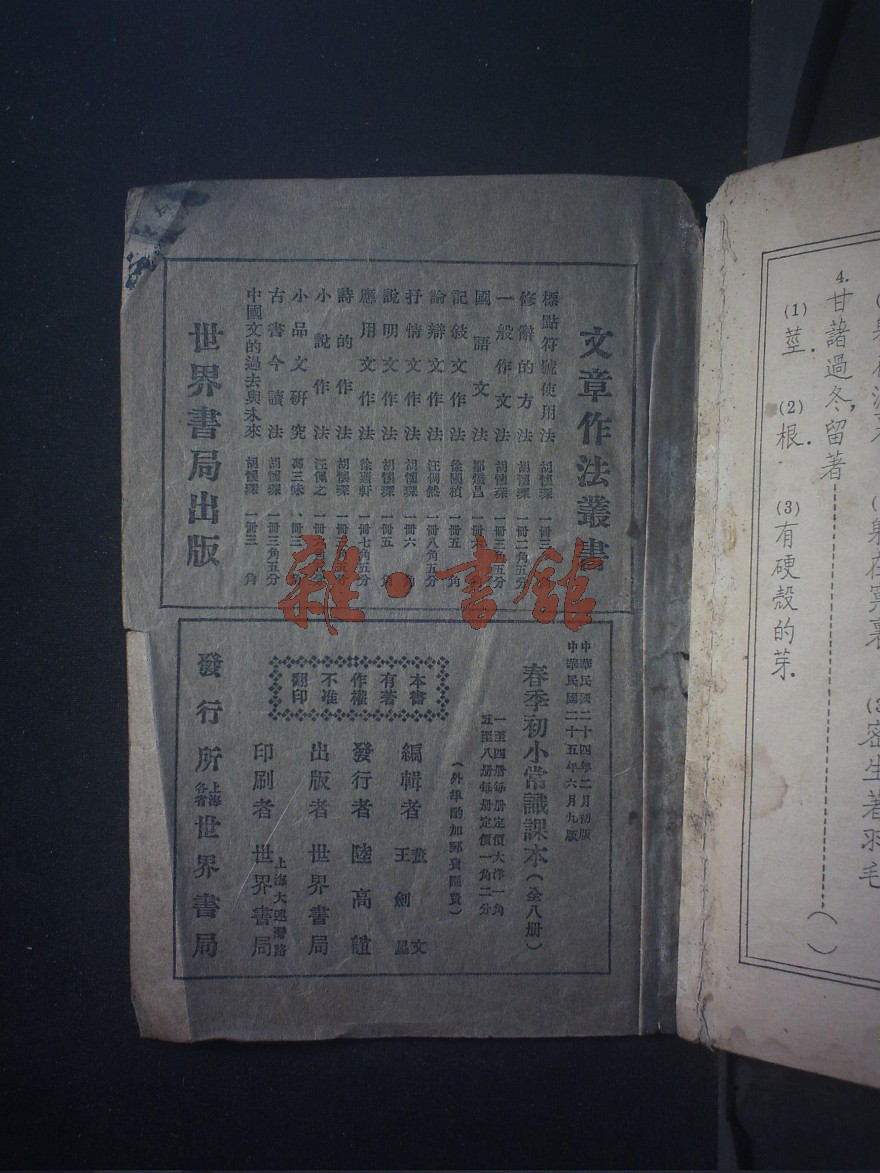 文章作法叢書
標點符號使用法 胡懷琛 一冊三
修辭的方法 胡懷琛 一冊二角五分
一般作文法 胡懷琛 一冊三角五分
國語文法 一冊
記敍文作法 徐國楨 一冊五角
論辯文作法 汪倜然 一冊八角五分
抒情文作法 胡懷琛 一冊六角
說明文作法 胡懷琛 一冊五角
應用文作法 徐 軒 一冊七角五分
詩的作法 胡懷琛 一冊 五分
小說作法 汪佩之 一冊
小品文研究 馮三昧 一冊三
古書今讀法 胡懷琛 一冊三角五分
中國文的過去與未來 胡懷琛 一冊三角
世界書局出版
雜·書館
中華民國二十四年二月初版
中華民國二十五年六月九版
春季初小常識課本(全八册)
一至四册每册定價大洋一角
五至八册每册定價一角二分
(外埠酌加郵費匯費)
本書
有著
作權
不准
翻印
編輯者 董文
王劍星
發行者 陸高誼
出版者 世界書局
印刷者 世界書局
上海大連灣路
發行所 上海 各省 世界書局
4. 甘藷過冬,留著( )
(1) 莖. (2) 根. (3) 有硬殼的芽.
(3) 密生著羽毛